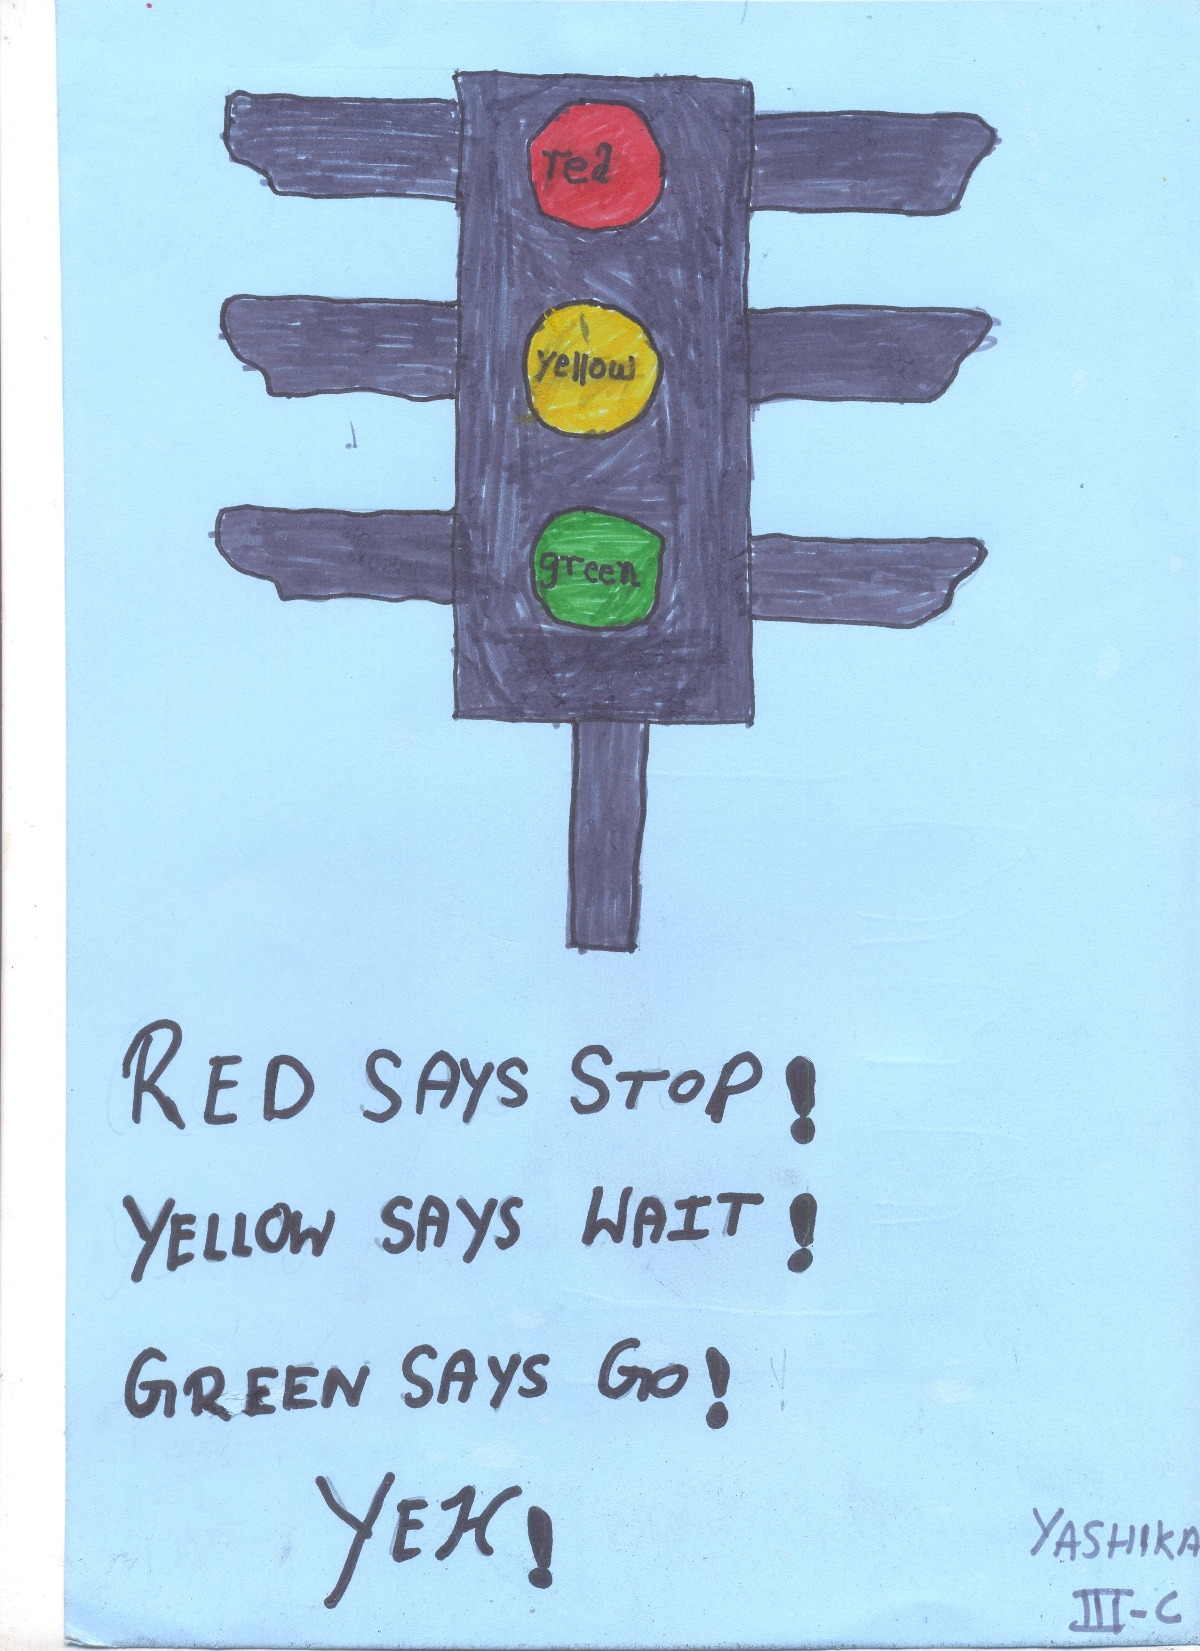 red
yellow
green
RED SAYS STOP!
YELLOW SAYS WAIT!
GREEN SAYS GO!
YEH!
YASHIKA
III-C